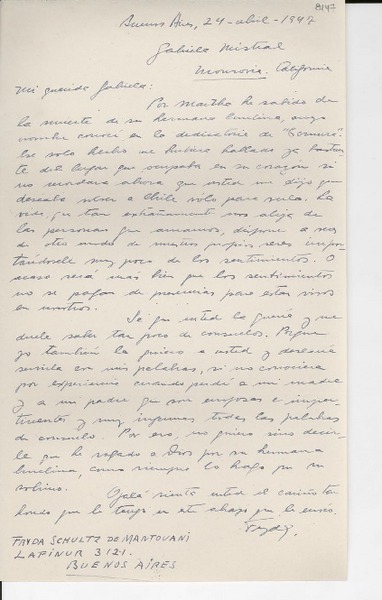 8147
Buenos Aires, 24-abril-1947
Gabriela Mistral
Monrovia. California
Mi querida Gabriela:
Por Martha he sabido de
la muerte de su hermana Emelina, cuyo
nombre conocí en la dedicatoria de "Ternura".
Ese solo hecho me hubiera hablado ya bastan-
te del lugar que ocupaba en su corazón si
no recordara ahora que usted me dijo que
deseaba volver a Chile sólo para verla. La
vida, que tan extrañamente nos aleja de
las personas que amamos, dispone a veces
de otro modo de nuestros propios seres impor-
tándosele muy poco de los sentimientos. O
acaso será más bien que los sentimientos
no se pagan de presencias para estar vivos
en nosotros.
Sé que usted la quería y me
duele saber tan poco de consuelos. Porque
yo también la quiero a usted y desearía
servirla con mis palabras, si no conociera
por experiencia cuando perdí a mi madre
y a un padre que son
y muy todas las palabras
de consuelo. Por eso, no quiero sino decir-
le que he rogado a Dios por su hermana
Emelina, como siempre lo hago por su
sobrino.
Ojalá sienta usted el cariño tan
hondo que le tengo en este abrazo que le envío.
Fryda
FRYDA SCHULTZ DE MANTOVANI
LAFINUR 3121.
BUENOS AIRES